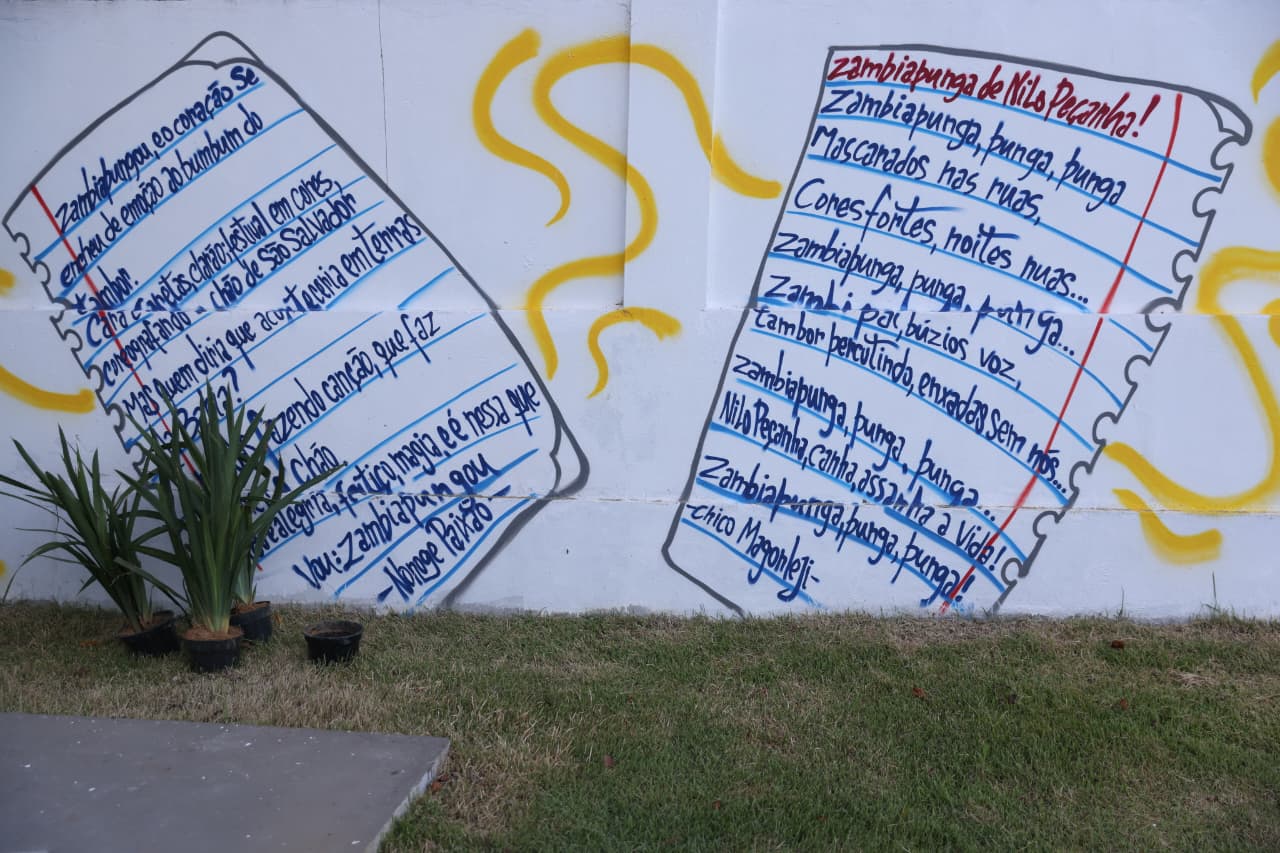 Zambiapungou, e o coração se
encheu de emoção ao bumbum do
tambor.
Cara caretas, clarão, festival em cores,
coreografando - chão de São Salvador
Mas quem diria que aconteceria em terras
da Bahia?
fazendo canção, que faz
Chão.
alegria, feitiço, magia, e é nessa que
Vou: Zambiapungou
-Nonoge Paixão-
Zambiapunga de Nilo Peçanha!
Zambiapunga, punga, punga
Mascarados nas ruas,
Cores fortes, noites nuas...
Zambiapunga, punga, punga...
Zambi pai, búzios voz,
tambor percutindo, enxadas sem nós...
Zambiapunga, punga, punga...
Nilo Peçanha, canha, assanha a vida!
Zambiapunga, punga, punga!
-Chico Magonleji-